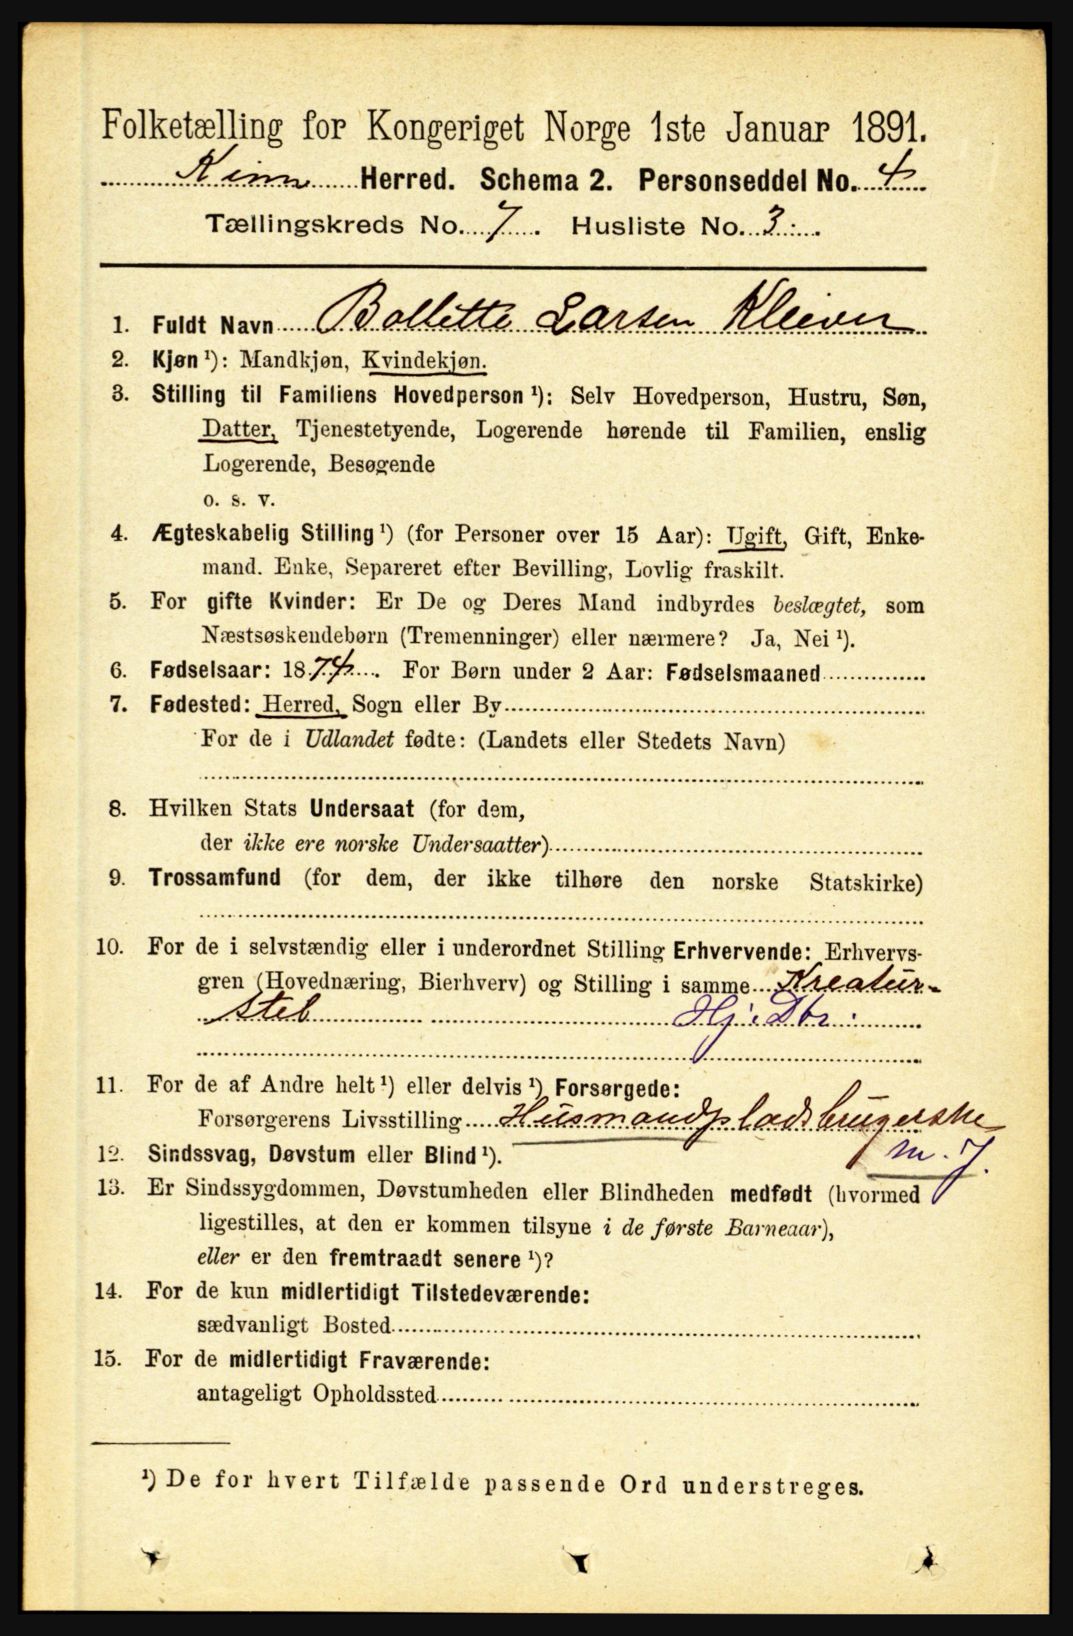 Folketælling for Kongeriget Norge 1ste Januar 1891.
Kinn Herred. Schema 2. Personseddel No. 4
Tællingskreds No. 7. Husliste No. 3.
1. Fuldt Navn Bollette Larsen Kleiven
2. Kjøn ¹): Mandkjøn, Kvindekjøn.
3. Stilling til Familiens Hovedperson ¹): Selv Hovedperson, Hustru, Søn,
Datter, Tjenestetyende, Logerende hørende til Familien, enslig
Logerende, Besøgende
o. s. v.
4. Ægteskabelig Stilling ¹) (for Personer over 15 Aar): Ugift, Gift, Enke-
mand. Enke, Separeret efter Bevilling, Lovlig fraskilt.
5. For gifte Kvinder: Er De og Deres Mand indbyrdes beslægtet, som
Næstsøskendebørn (Tremenninger) eller nærmere? Ja, Nei ¹).
6. Fødselsaar: 1874. For Børn under 2 Aar: Fødselsmaaned
7. Fødested: Herred, Sogn eller By
For de i Udlandet fødte: (Landets eller Stedets Navn)
8. Hvilken Stats Undersaat (for dem,
der ikke ere norske Undersaatter)
9. Trossamfund (for dem, der ikke tilhøre den norske Statskirke)
10. For de i selvstændig eller i underordnet Stilling Erhvervende: Erhvervs-
gren (Hovednæring, Bierhverv) og Stilling i samme Kreatur-
stel Hj. Dtr:
11. For de af Andre helt ¹) eller delvis ¹) Forsørgede:
Forsørgerens Livsstilling Husmandspladsbrugerske
m. J.
12. Sindssvag, Døvstum eller Blind ¹).
13. Er Sindssygdommen, Døvstumheden eller Blindheden medfødt (hvormed
ligestilles, at den er kommen tilsyne i de første Barneaar),
eller er den fremtraadt senere ¹)?
14. For de kun midlertidigt Tilstedeværende:
sædvanligt Bosted
15. For de midlertidigt Fraværende:
antageligt Opholdssted
¹) De for hvert Tilfælde passende Ord understreges.